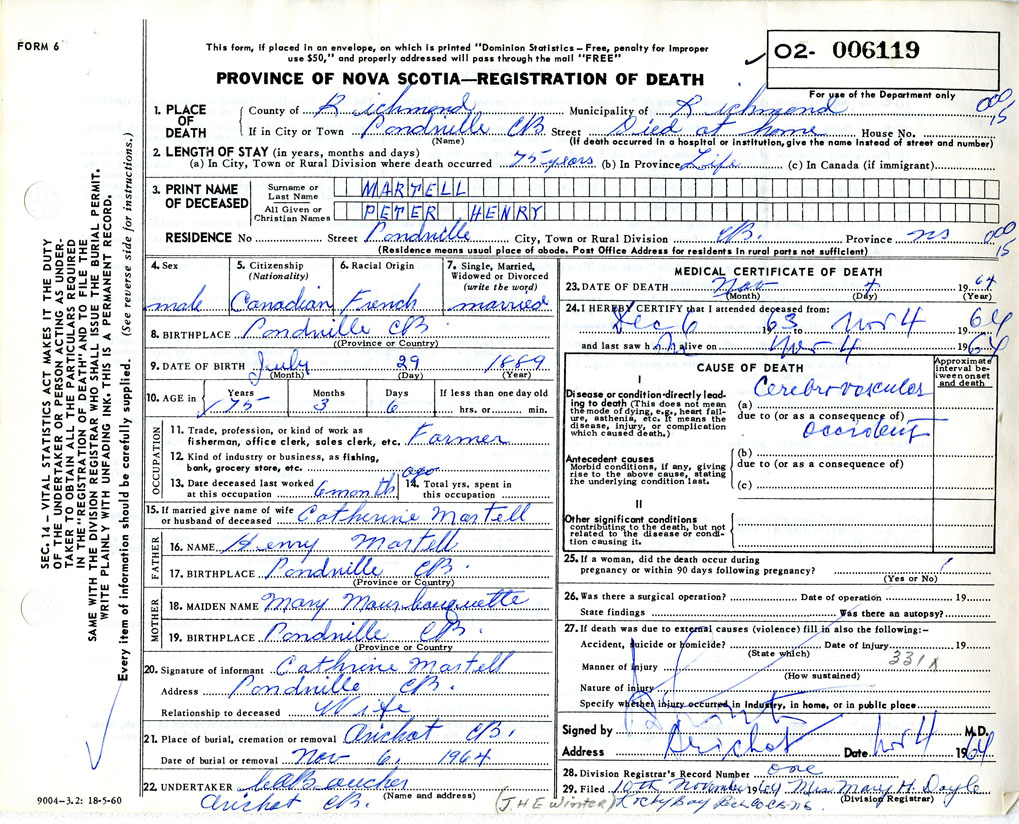 FORM 6
This form, if placed in an envelope, on which is printed "Dominion Statistics – Free, penalty for improper
use $50," and properly addressed will pass through the mail "FREE"
02- 006119
PROVINCE OF NOVA SCOTIA—REGISTRATION OF DEATH
For use of the Department only
1. PLACE OF DEATH County of Richmond Municipality of Richmond 000 15
If in City or Town Pondville CB Street Died at home House No.
(Name) (If death occurred in a hospital or institution, give the name instead of street and number)
2. LENGTH OF STAY (in years, months and days)
(a) In City, Town or Rural Division where death occurred 75 years (b) In Province Life (c) In Canada (if immigrant)
3. PRINT NAME OF DECEASED Surname or Last Name MARTELL
All Given or Christian Names PETER HENRY
RESIDENCE No Street Pondville City, Town or Rural Division CB. Province ns 000 15
(Residence means usual place of abode. Post Office Address for residents in rural parts not sufficient)
4. Sex male
5. Citizenship (Nationality) Canadian
6. Racial Origin French
7. Single, Married, Widowed or Divorced (write the word) married
8. BIRTHPLACE Pondville CB
(Province or Country)
9. DATE OF BIRTH July 29 1889
(Month) (Day) (Year)
10. AGE in Years 75 Months 3 Days 6 If less than one day old hrs. or min.
OCCUPATION
11. Trade, profession, or kind of work as
fisherman, office clerk, sales clerk, etc. Farmer
12. Kind of industry or business, as fishing,
bank, grocery store, etc.
13. Date deceased last worked
at this occupation 6 months ago
14. Total yrs. spent in
this occupation
15. If married give name of wife
or husband of deceased Catherine Martell
FATHER
16. NAME Henry Martell
17. BIRTHPLACE Pondville CB.
(Province or Country)
MOTHER
18. MAIDEN NAME Mary
19. BIRTHPLACE Pondville CB.
(Province or Country
20. Signature of informant Cathrine Martell
Address Pondville CB.
Relationship to deceased Wife
21. Place of burial, cremation or removal Arichat CB.
Date of burial or removal Nov 6, 1964
22. UNDERTAKER C A Boucher
(Name and address)
Arichat CB.
9004-3.2: 18-5-60
MEDICAL CERTIFICATE OF DEATH
23. DATE OF DEATH Nov 4 1964
(Month) (Day) (Year)
24. I HEREBY CERTIFY that I attended deceased from:
Dec 6 1963 to Nov 4 1964
and last saw him alive on Nov 4 1964
CAUSE OF DEATH
Approximate interval between onset and death
I
Disease or condition directly leading to death (This does not mean the mode of dying, e.g., heart failure, asthenia, etc. It means the disease, injury, or complication which caused death.)
(a) Cerebrovascular
due to (or as a consequence of)
accident
Antecedent causes
Morbid conditions, if any, giving rise to the above cause, stating the underlying condition last.
(b)
due to (or as a consequence of)
(c)
II
Other significant conditions
contributing to the death, but not related to the disease or condition causing it.
25. If a woman, did the death occur during
pregnancy or within 90 days following pregnancy?
(Yes or No)
26. Was there a surgical operation? Date of operation 19
State findings Was there an autopsy?
27. If death was due to external causes (violence) fill in also the following:–
Accident, suicide or homicide? Date of injury 19
(State which) 331X
Manner of injury
(How sustained)
Nature of injury
Specify whether injury occurred in industry, in home, or in public place
Signed by M.D.
Address Arichat Date Nov 4 1964
28. Division Registrar's Record Number one
29. Filed 10th November 1964 Mrs. Mary H. Doyle
(Division Registrar)
(J. H E Winter)
SEC. 14 – VITAL STATISTICS ACT MAKES IT THE DUTY
OF THE UNDERTAKER OR PERSON ACTING AS UNDER-
TAKER TO OBTAIN ALL THE PARTICULARS REQUIRED
IN THE "REGISTRATION OF DEATH" AND TO FILE THE
SAME WITH THE DIVISION REGISTRAR WHO SHALL ISSUE THE BURIAL PERMIT.
WRITE PLAINLY WITH UNFADING INK. THIS IS A PERMANENT RECORD.
Every item of information should be carefully supplied. (See reverse side for instructions.)